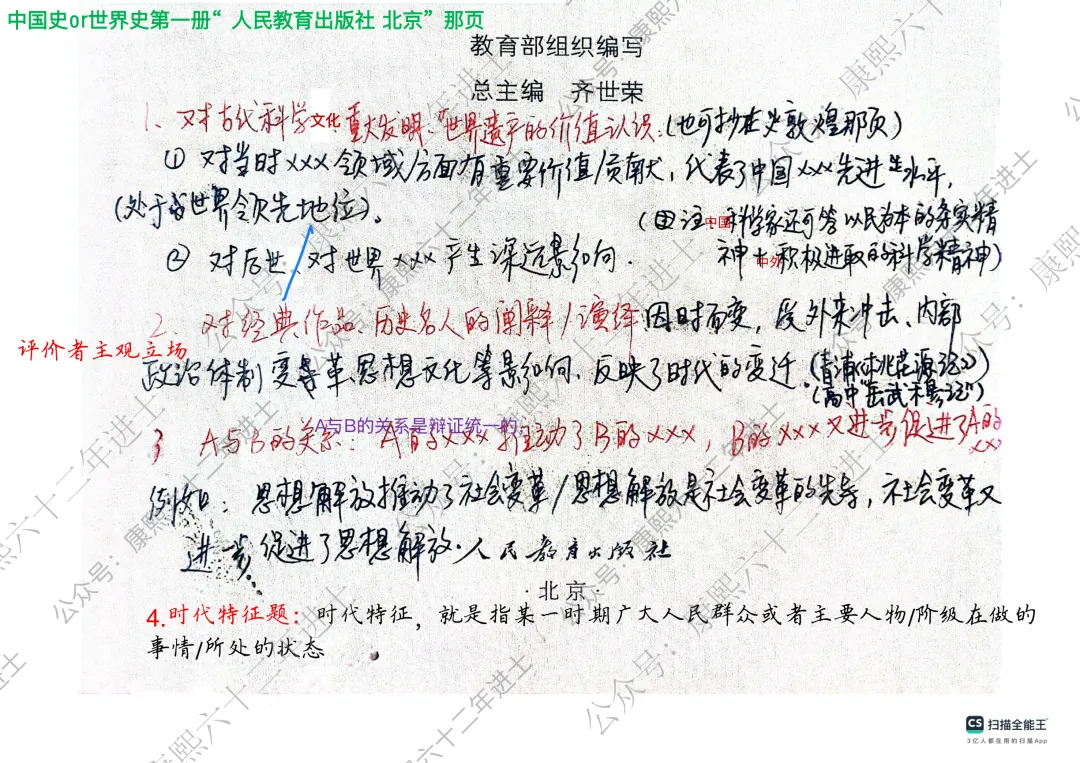 中国史or世界史第一册“人民教育出版社 北京”那页
教育部组织编写
总主编 齐世荣
1、对古代科学文化、重大发明、世界遗产的价值认识：(也可抄在P敦煌那页)
① 对当时xxx领域/方面有重要价值/贡献，代表了中国xxx先进水平，
(处于世界领先地位)。
(田注：中国科学家还可答以民为本的务实精
② 对后世、对世界xxx产生深远影响.
神+中外积极进取的科学精神)
2、对经典作品、历史名人的阐释/演绎因时而变，受外来冲击、内部
评价者主观立场
政治体制变革、思想文化等影响，反映了时代的变迁.(青浦《桃花源记》)
(高中“岳武穆”)
A与B的关系是辩证统一的，
3 A与B的关系：A的xxx推动了B的xxx，B的xxx又进一步促进了A的xxx
例如：思想解放推动了社会变革/思想解放是社会变革的先导，社会变革又
进一步促进了思想解放.人民教育出版社
·北京·
4.时代特征题：时代特征，就是指某一时期广大人民群众或者主要人物/阶级在做的
事情/所处的状态
公众号：康熙六十二年进士
CS 扫描全能王
3亿人都在用的扫描App